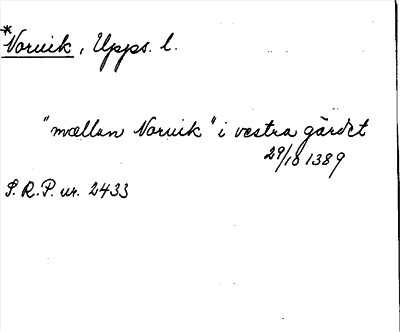 *Norvik, Upps. l.
"mællan Norvik" i vestra gärdet
29/10 1389
S.R.P. nr. 2433